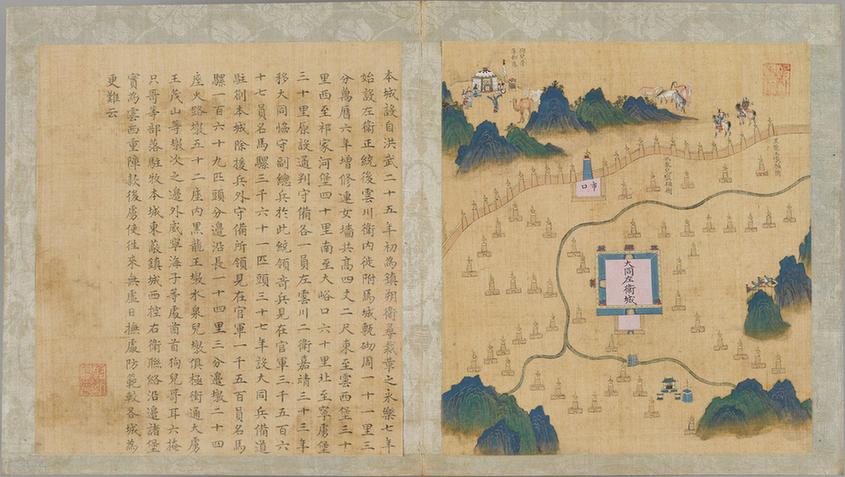 本城設自洪武二十五年初為鎮朔衛尋棄革之永樂七年
始設左衛正統後雲川衛內徙附焉城甎砌周一十一里三
分萬曆六年增修連女墻共高四丈二尺東至雲西堡三十
里西至祁家河堡四十里南至大峪口六十里北至寧虜堡
三十里原設通判守備各一員左雲川二衛嘉靖三十三年
移大同協守副總兵於此統領奇兵見在官軍三千五百六
十七員名馬騾三千六十一匹頭三十七年設大同兵備道
駐劄本城除援兵外守備所領見在官軍一千五百員名馬
騾一百六十九匹頭分邊沿長一十四里三分邊墩二十四
座火路墩五十二座內黑龍王墩水泉兒墩俱極衝通大虜
王茂山等墩次之邊外威寧海子等處酋首狗兒哥耳六掩
只哥等部落駐牧本城東蔽鎮城西控右衛聯絡沿邊諸堡
實為雲西重障款後虜使往來無虛日撫處防範較各城為
更難云
市口
大同左衛城